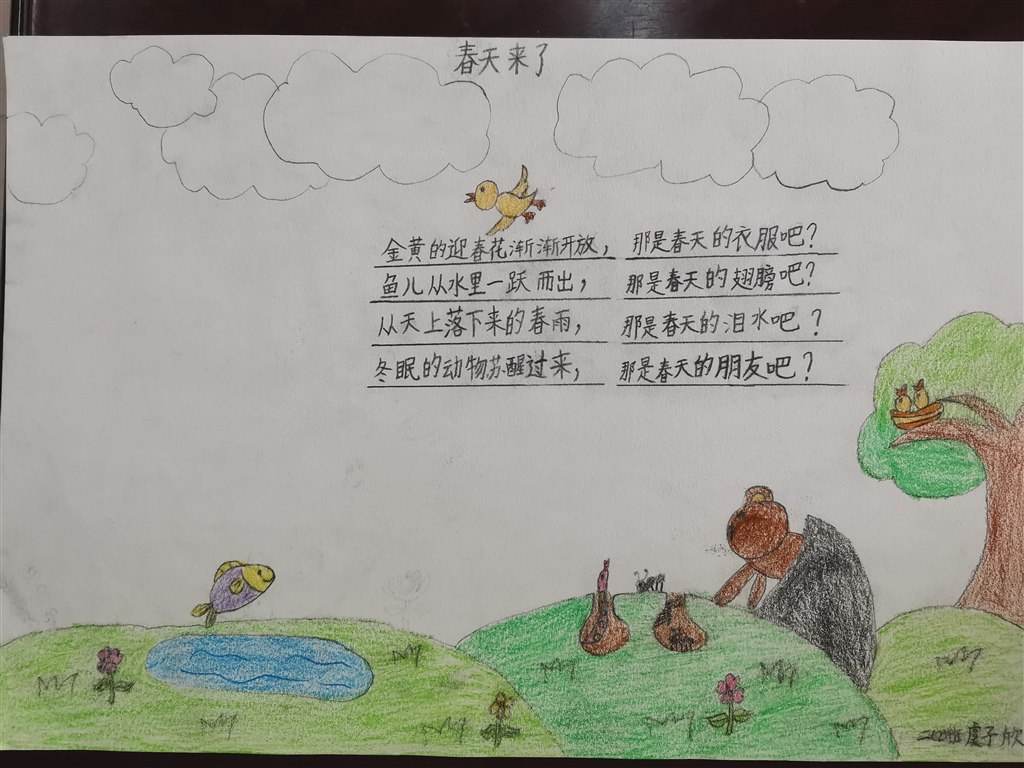 春天来了
金黄的迎春花渐渐开放，那是春天的衣服吧？
鱼儿从水里一跃而出，那是春天的翅膀吧？
从天上落下来的春雨，那是春天的泪水吧？
冬眠的动物苏醒过来，那是春天的朋友吧？
虞子欣